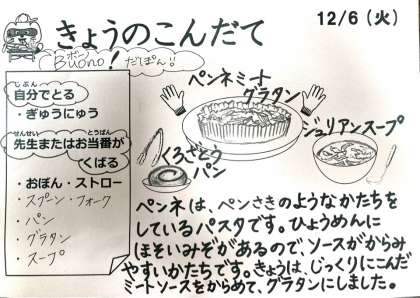 きょうのこんだて
12/6(火)
ボーノ
Buono! だぽん!!
じぶん
自分でとる
・ぎゅうにゅう
せんせい とうばん
先生またはお当番が
くばる
・おぼん・ストロー
・スプーン・フォーク
・パン
・グラタン
・スープ
ペンネミート
グラタン
ジュリアンスープ
くろざとう
パン
ペンネは、ペンさきのようなかたちを
しているパスタです。ひょうめんに
ほそいみぞがあるので、ソースがからみ
やすいかたちです。きょうは、じっくりにこんだ
ミートソースをからめて、グラタンにしました。